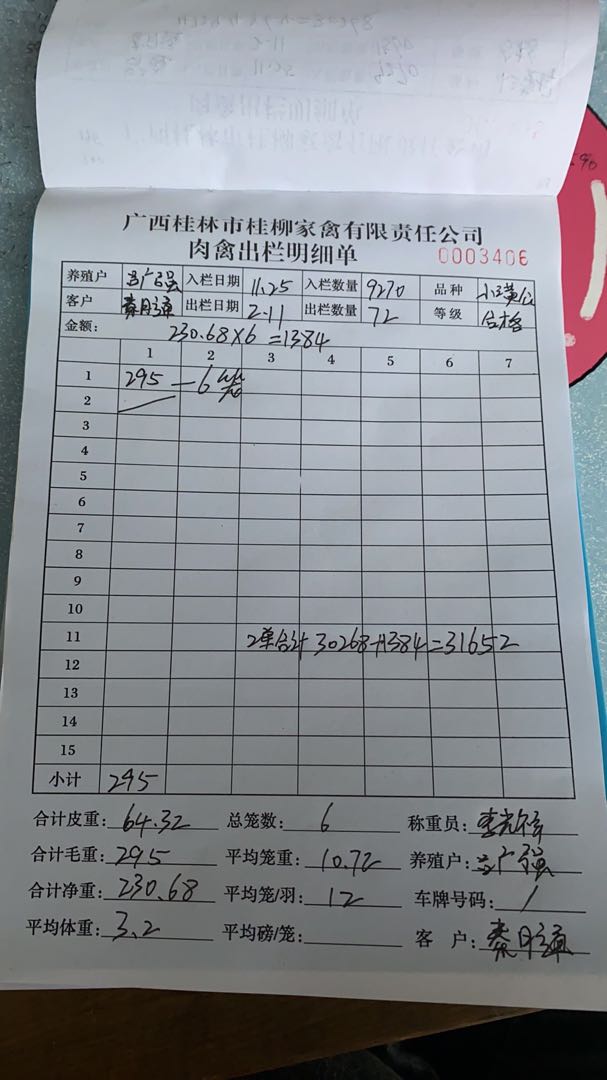 广西桂林市桂柳家禽有限责任公司
肉禽出栏明细单 0003406
养殖户 广强 入栏日期 11.25 入栏数量 9270 品种 小项公
客户 秦月 出栏日期 2.11 出栏数量 72 等级 合格
金额: 230.68×6=1384
1 2 3 4 5 6 7
1 295 — 6笼
2
3
4
5
6
7
8
9
10
11 2单合计 30268+1384=31652
12
13
14
15
小计 295
合计皮重: 64.32 总笼数: 6 称重员: 李
合计毛重: 295 平均笼重: 10.72 养殖户: 广强
合计净重: 230.68 平均笼/羽: 12 车牌号码: 1
平均体重: 3.2 平均磅/笼: 客 户: 秦月